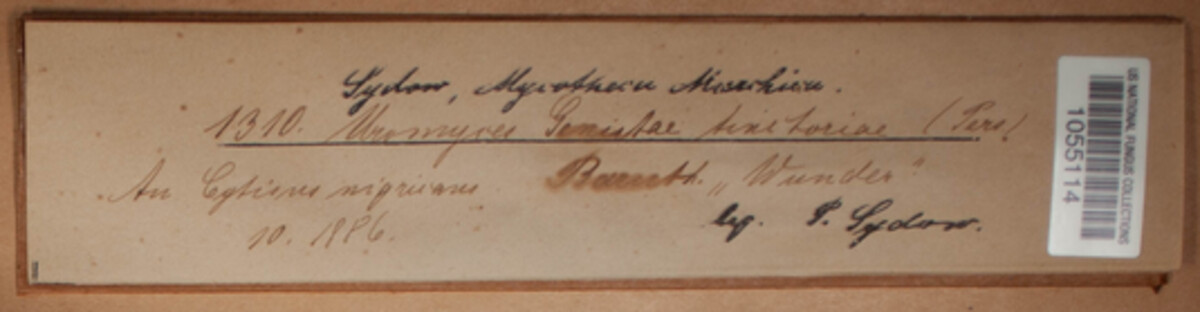 Sydow, Mycotheca Marchica.
1310. Uromyces Genistae tinctoriae (Pers.)
An Cytisus nigricans. Baruth. „Wunder“
10. 1886.
leg. P. Sydow.
US NATIONAL FUNGUS COLLECTIONS
1055114